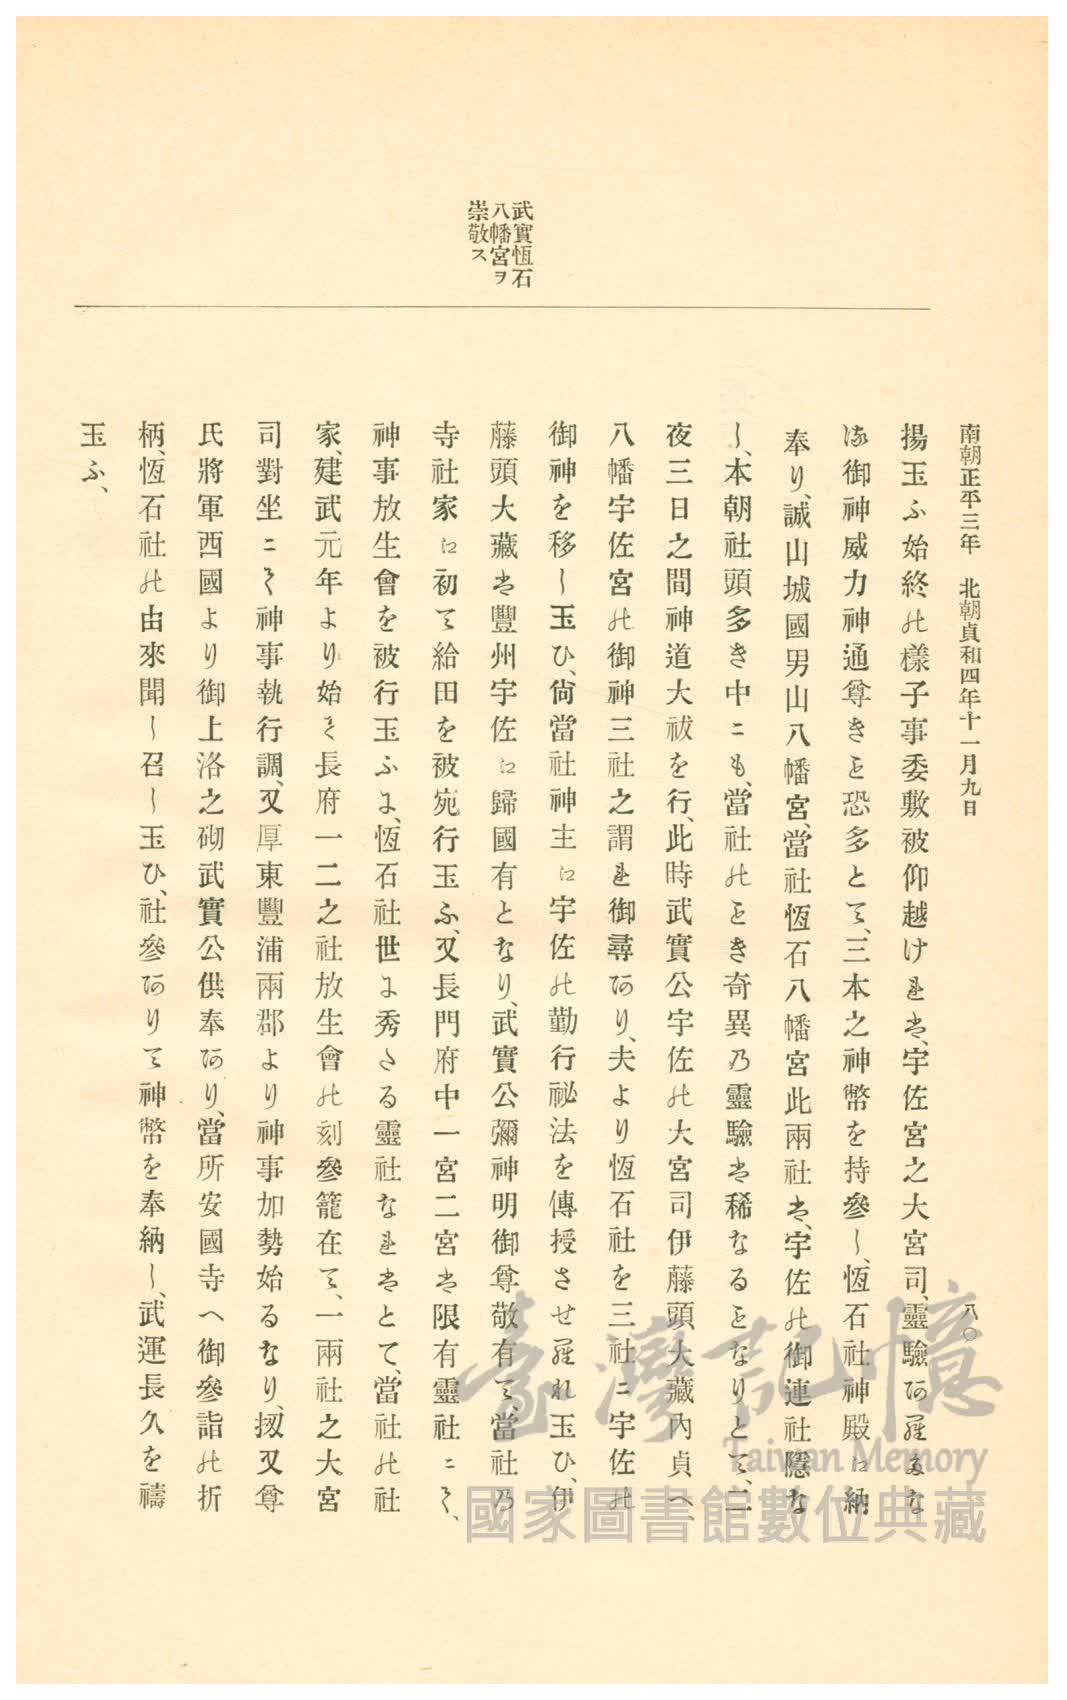 南朝正平三年　北朝貞和四年十一月九日
八〇
揚玉ふ始終の樣子事委敷被仰越けれは、宇佐宮之大宮司、靈驗あらたな
る御神威力神通尊きこと恐多とて、三本之神幣を持參し、恆石社神殿に納
奉り、誠山城國男山八幡宮、當社恆石八幡宮此兩社は、宇佐の御連社隱な
し、本朝社頭多き中ニも、當社のことき奇異乃靈驗は稀なることなりとて、二
夜三日之間神道大祓を行、此時武實公宇佐の大宮司伊藤頭大藏內貞へ、
八幡宇佐宮の御神三社之謂れ御尋あり、夫より恆石社を三社ニ宇佐の
御神を移し玉ひ、尙當社神主に宇佐の勤行祕法を傳授させられ玉ひ、伊
藤頭大藏は豐州宇佐に歸國有となり、武實公彌神明御尊敬有て、當社乃
武實恆石
八幡宮ヲ
崇敬ス
寺社家に初て給田を被宛行玉ふ、又長門府中一宮二宮は限有靈社ニて、
神事放生會を被行玉ふに、恆石社世に秀たる靈社なれはとて、當社の社
家、建武元年より始て長府一二之社放生會の刻參籠在て、一兩社之大宮
司對坐ニて神事執行調、又厚東豐浦兩郡より神事加勢始るなり、扨又尊
氏將軍西國より御上洛之砌武實公供奉あり、當所安國寺へ御參詣の折
柄、恆石社の由來聞し召し玉ひ、社參ありて神幣を奉納し、武運長久を禱
玉ふ、
臺灣記憶
Taiwan Memory
國家圖書館數位典藏